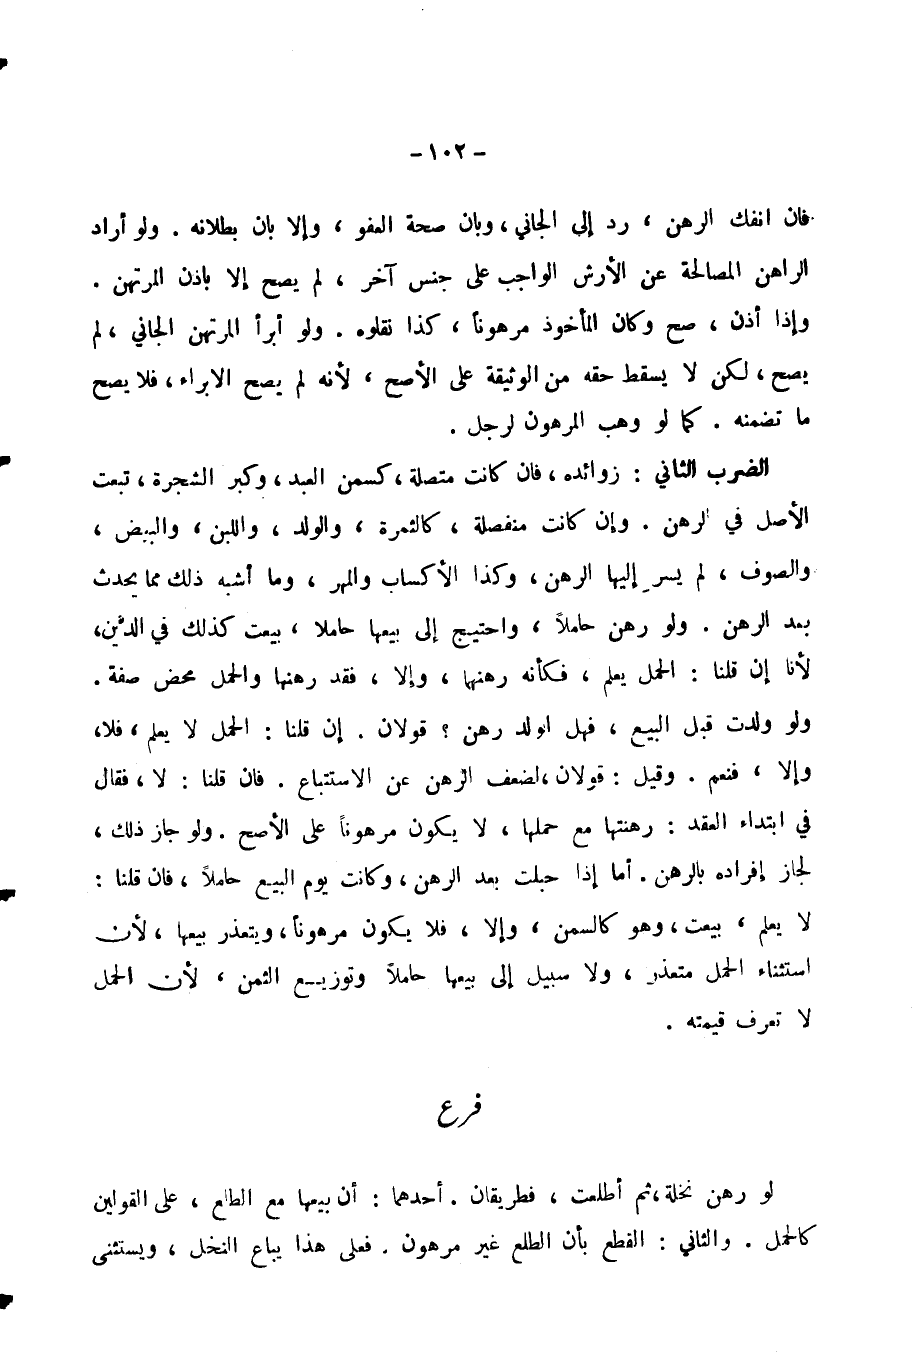 - ١٠٢ -
فان انفك الرهن ، رد إلى الجاني ، وبان صحة العفو ، وإلا بان بطلانه . ولو أراد
الراهن المصالحة عن الأرش الواجب على جنس آخر ، لم يصح إلا باذن المرتهن .
وإذا أذن ، صح وكان المأخوذ مرهوناً ، كذا نقلوه . ولو أبرأ المرتهن الجاني ، لم
يصح ، لكن لا يسقط حقه من الوثيقة على الأصح ، لأنه لم يصح الابراء ، فلا يصح
ما تضمنه . كما لو وهب المرهون لرجل .
الضرب الثاني : زوائده ، فان كانت متصلة ، كسمن العبد ، وكبر الشجرة ، تبعت
الأصل في الرهن . وإن كانت منفصلة ، كالثمرة ، والولد ، واللبن ، والبيض ،
والصوف ، لم يسرِ إليها الرهن ، وكذا الأكساب والمهر ، وما أشبه ذلك مما يحدث
بعد الرهن . ولو رهن حاملاً ، واحتيج إلى بيعها حاملا ، بيعت كذلك في الدَّين،
لأنا إن قلنا : الحمل يعلم ، فكأنه رهنها ، وإلا ، فقد رهنها والحمل محض صفة .
ولو ولدت قبل البيع ، فهل الولد رهن ؟ قولان . إن قلنا : الحمل لا يعلم ، فلا،
وإلا ، فنعم . وقيل : قولان ، لضعف الرهن عن الاستتباع . فان قلنا : لا ، فقال
في ابتداء العقد : رهنتها مع حملها ، لا يكون مرهوناً على الأصح . ولو جاز ذلك ،
لجاز إفراده بالرهن . أما إذا حبلت بعد الرهن ، وكانت يوم البيع حاملاً ، فان قلنا :
لا يعلم ، بيعت ، وهو كالسمن ، وإلا ، فلا يكون مرهوناً ، ويتعذر بيعها ، لأن
استثناء الحمل متعذر ، ولا سبيل إلى بيعها حاملاً وتوزيع الثمن ، لأن الحمل
لا تعرف قيمته .
فرع
لو رهن نخلة ، ثم أطلعت ، فطريقان . أحدهما : أن بيعها مع الطلع ، على القولين
كالحمل . والثاني : القطع بأن الطلع غير مرهون . فعلى هذا يباع النخل ، ويستثنى